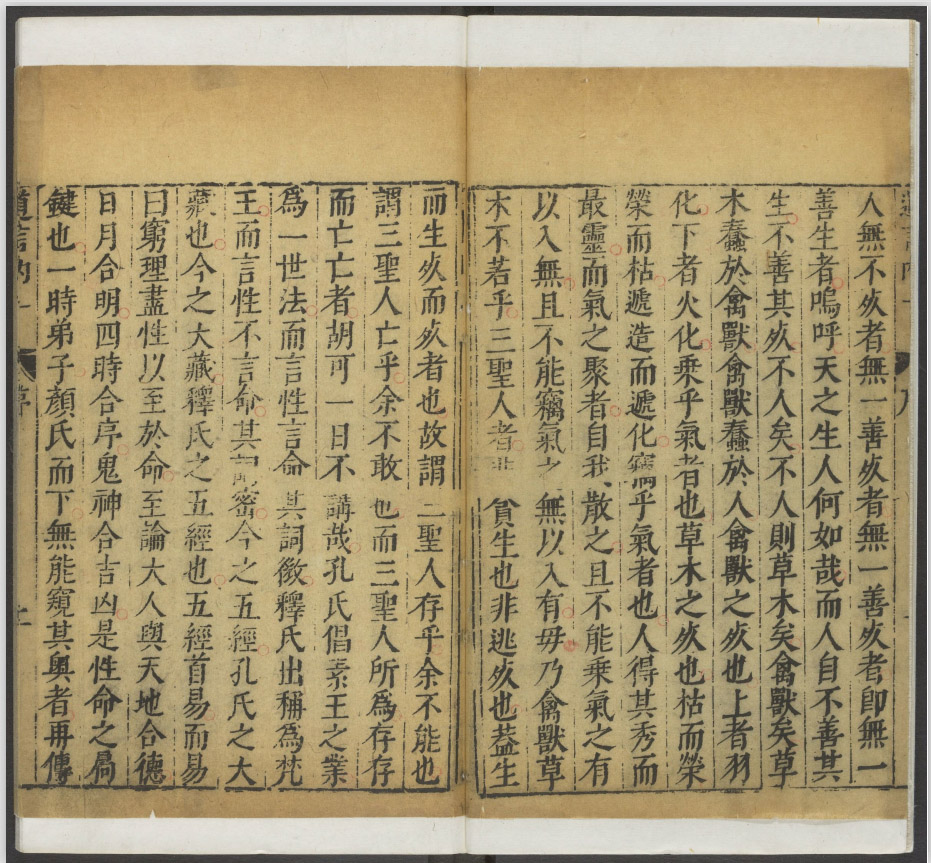 人無不死者無一善死者無一善死者即無一
善生者嗚呼天之生人何如哉而人自不善其
生不善其死不人矣不人則草木矣禽獸矣草
木蠢於禽獸禽獸蠢於人禽獸之死也上者羽
化下者火化乘乎氣者也草木之死也枯而榮
榮而枯遞造而遞化竊乎氣者也人得其秀而
最靈而氣之聚者自我散之且不能乘氣之有
以入無且不能竊氣之無以入有毋乃禽獸草
木不若乎三聖人者非貪生也非逃死也葢生
而生死而死者也故謂三聖人存乎余不能也
謂三聖人亡乎余不敢也而三聖人所爲存存
而亡亡者胡可一日不講哉孔氏倡素王之業
爲一世法而言性言命其詞微釋氏出稱爲梵
王而言性不言命其詞密今之五經孔氏之大
藏也今之大藏釋氏之五經也五經首易而易
曰窮理盡性以至於命至論大人與天地合德
日月合明四時合序鬼神合吉凶是性命之扃
鍵也一時弟子顔氏而下無能窺其奧者再傳